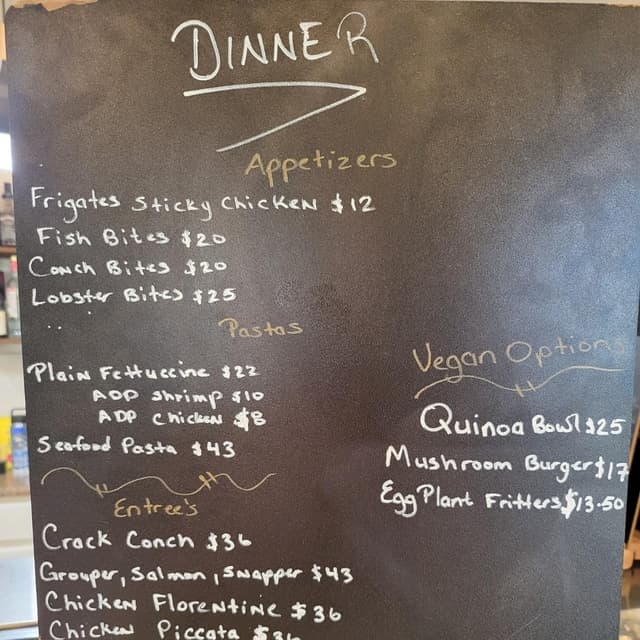 DINNER
Appetizers
Frigates Sticky Chicken $12
Fish Bites $20
Conch Bites $20
Lobster Bites $25
Pastas
Plain Fettuccine $22
ADD Shrimp $10
ADD Chicken $8
Seafood Pasta $43
Vegan Options
Quinoa Bowl $25
Mushroom Burger $17
Egg Plant Fritters $13.50
Entree's
Crack Conch $36
Grouper, Salmon, Snapper $43
Chicken Florentine $36
Chicken Piccata $36